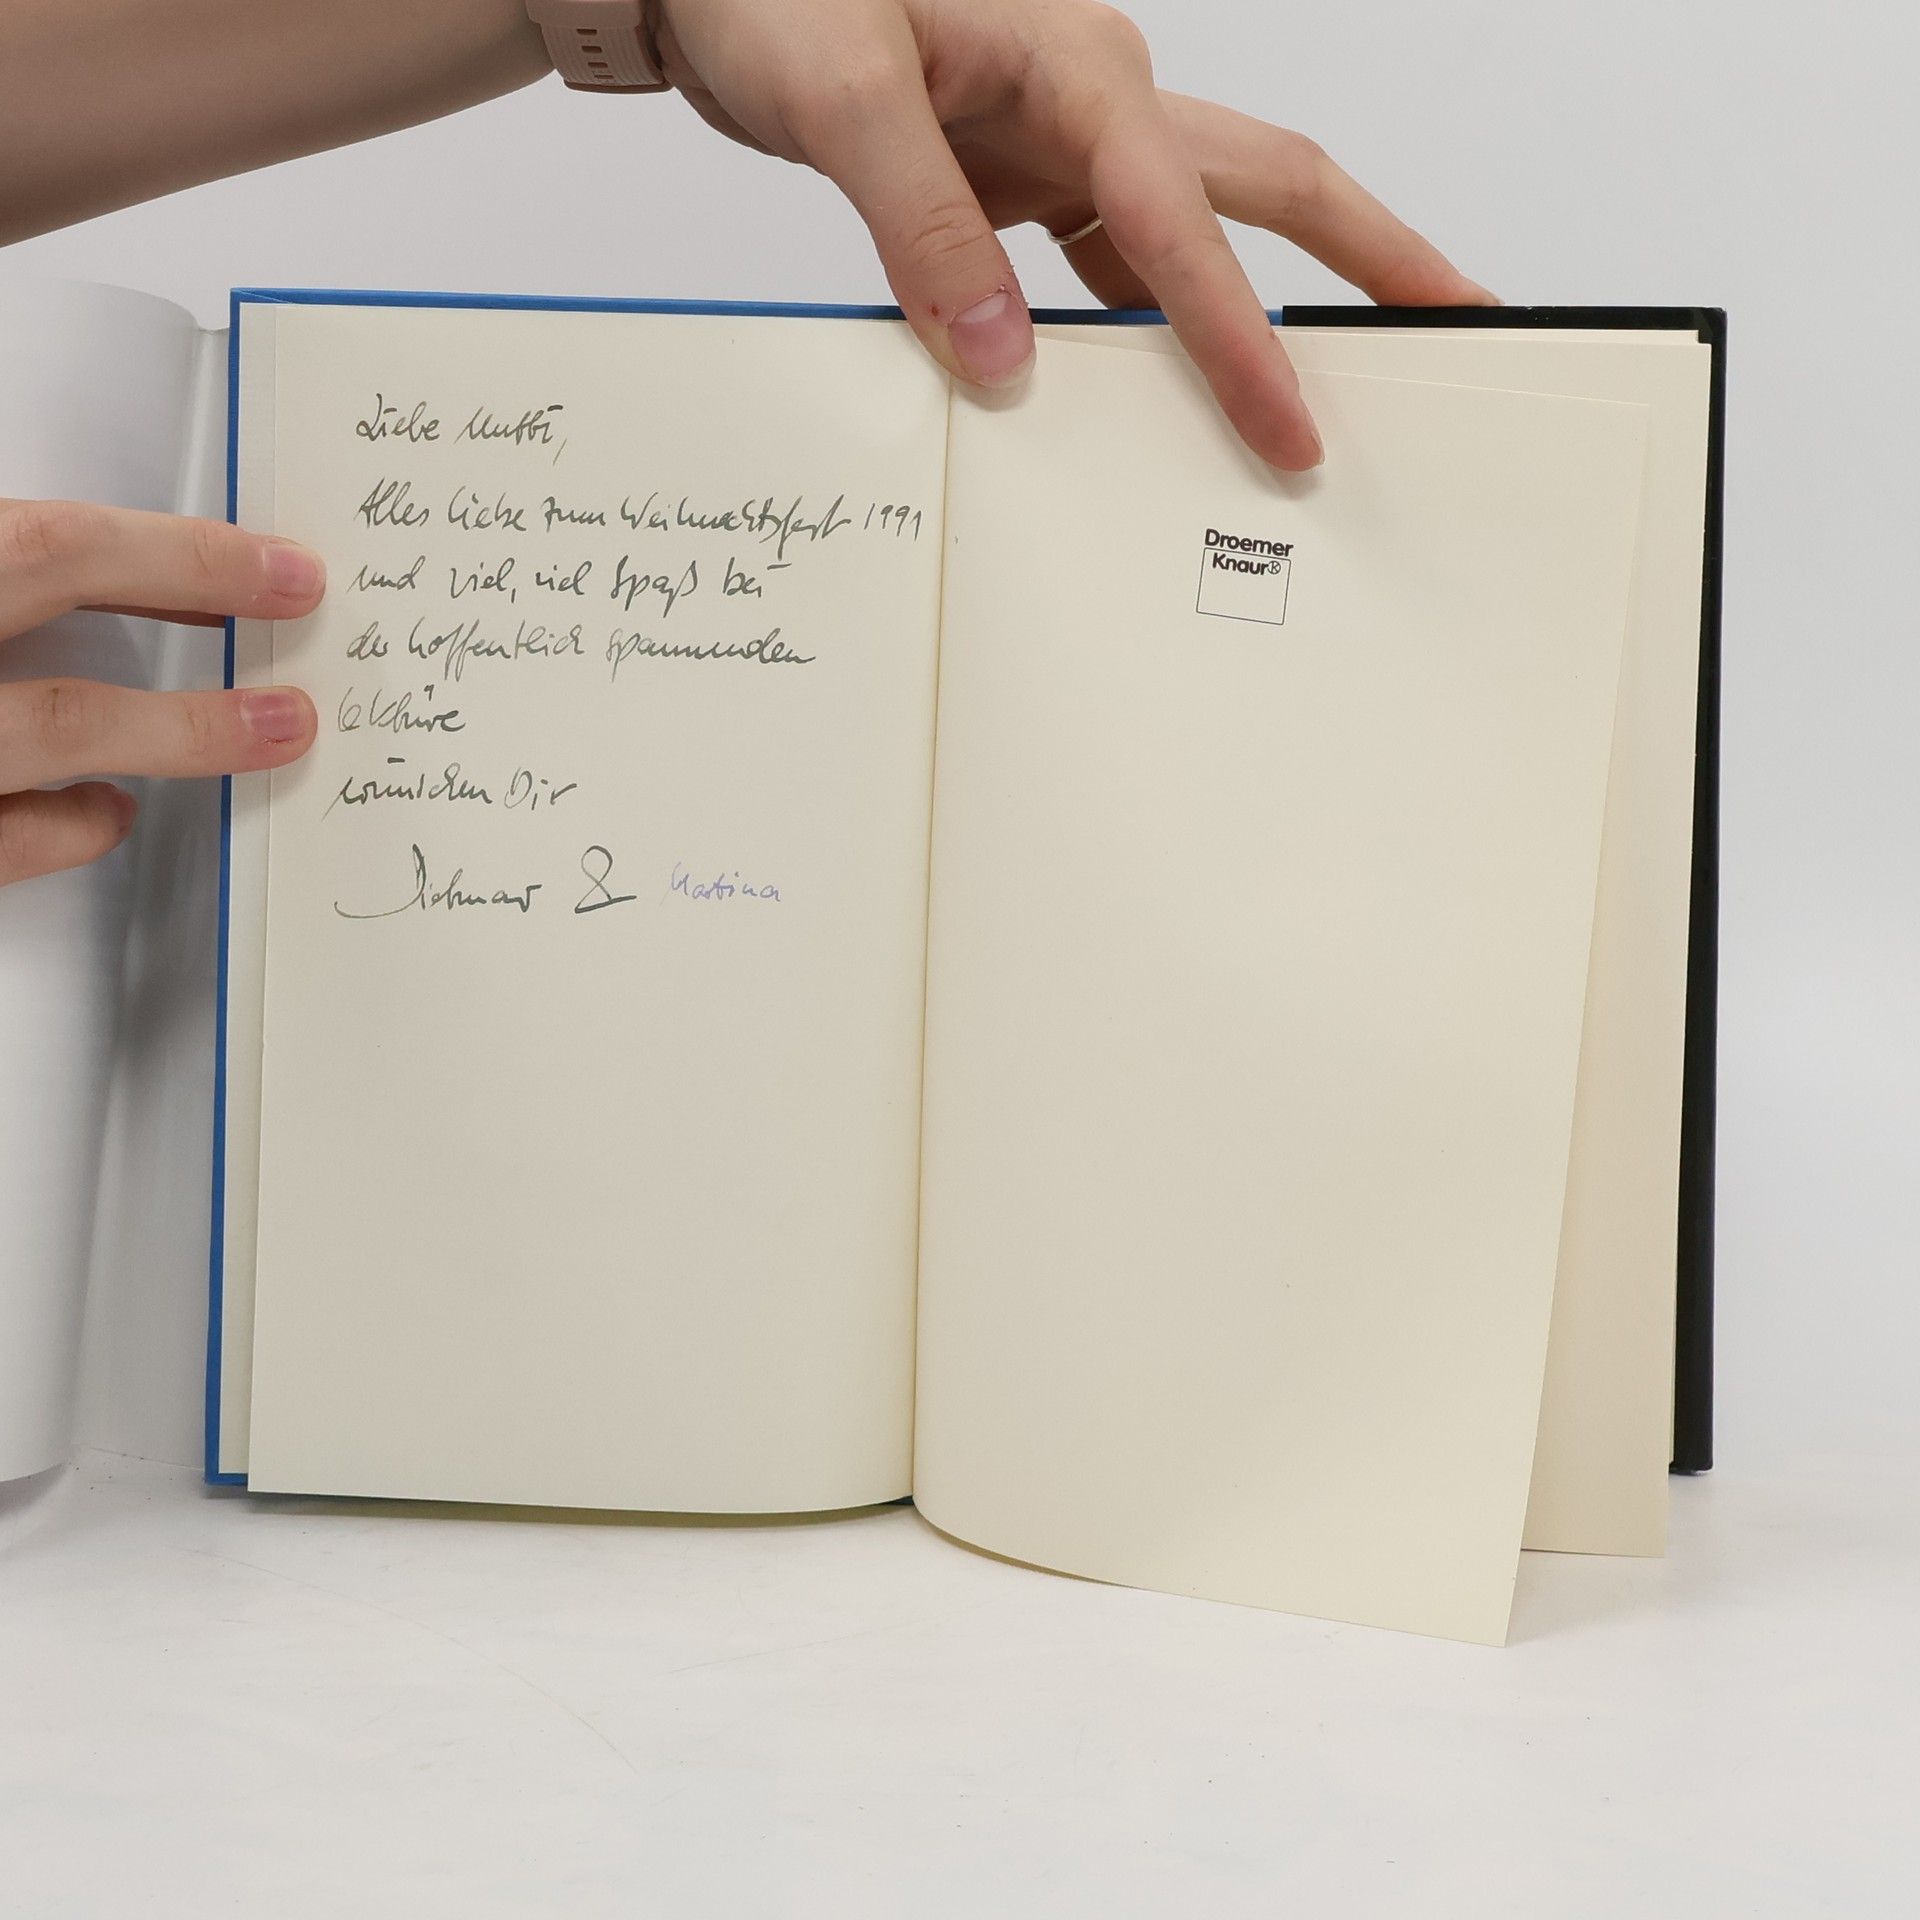 Liebe Mutti,
Alles Liebe zum Weihnachtsfest 1991
und viel, viel Spaß bei
der hoffentlich spannenden
Lektüre
wünschen Dir
Dietmar & Martina
Droemer
Knaur®